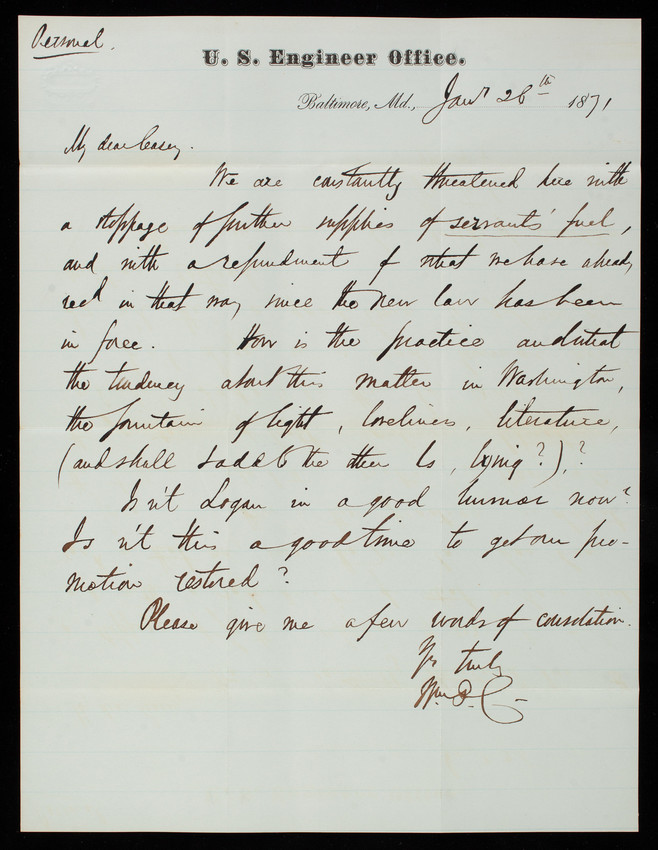 Personal.
U. S. Engineer Office.
Baltimore, Md., Jany 26th 1871
My dear Casey.
We are constantly threatened here with
a stoppage of further supplies of servants' fuel,
and with a refundment of what we have already
recd in that way since the new law has been
in force. How is the practice and what
the tendency about this matter in Washington,
the fountain of light, loveliness, literature,
(and shall I add to the other Ls, lying?),?
Isn't Logan in a good humor now?
Is n't this a good time to get our pro-
motion restored?
Please give me a few words of consolation.
Yrs truly
Wm P. C